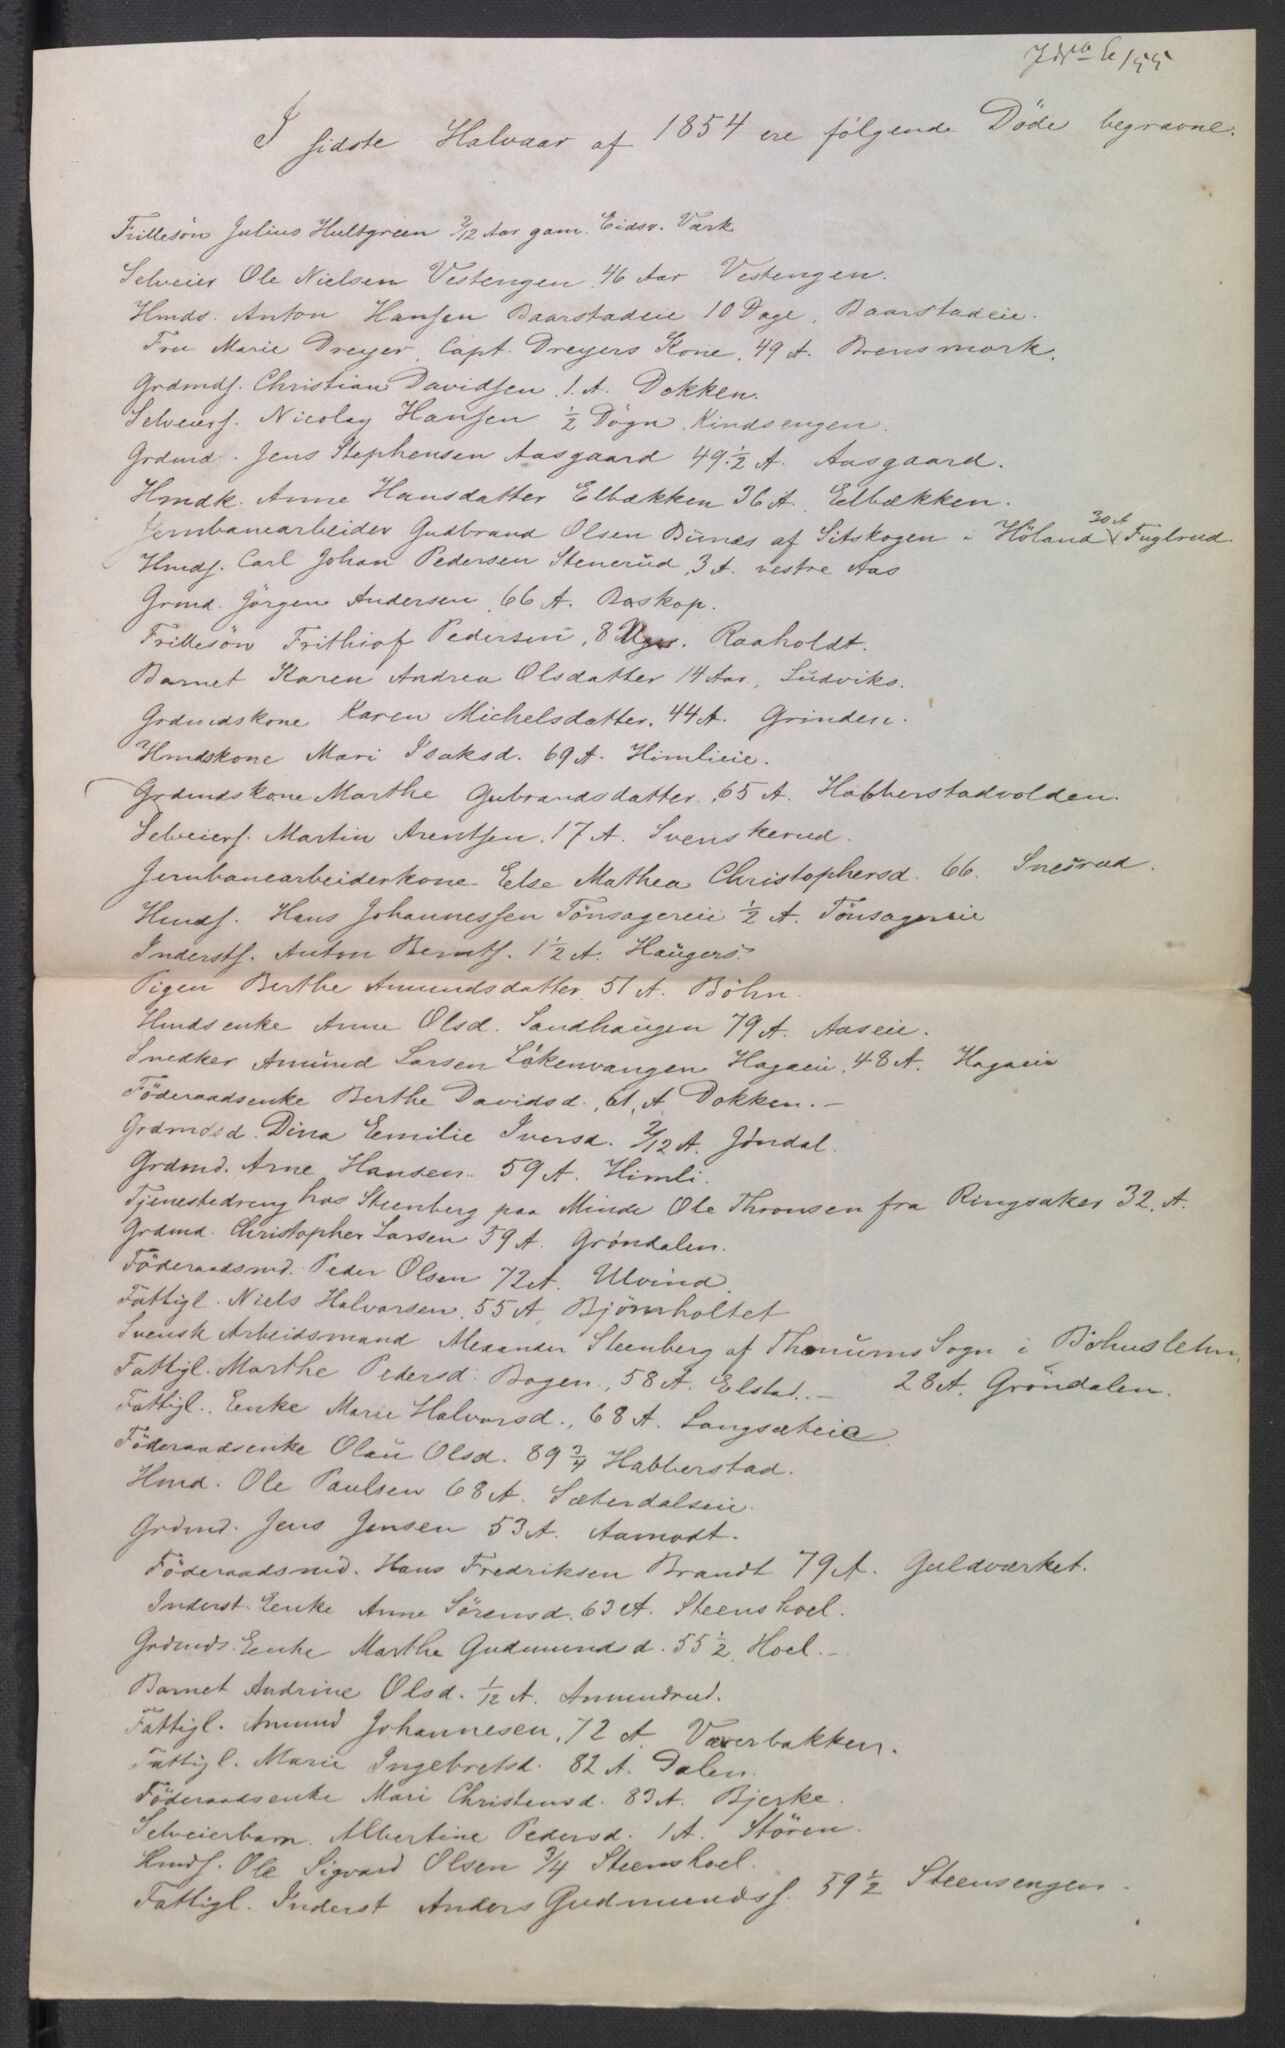 I sidste Halvaar af 1854 ere følgende Döde begravne.
Frillesön Julius Hultgreen 2/12 Aar gam. Eidsv. Værk
Selveier Ole Nielsen Vestengen, 46 Aar Vestengen.
Hmds. Anton Hansen Baarstadeie 10 Dage, Baarstadeie.
Fru Marie Dreyer, Capt. Dreyers Kone, 49 A. Brensmork.
Grdmds. Christian Davidsen, 1 A. Dokken.
Selveiers. Nicolay Hansen ½ Dögn, Kindsengen.
Grdmd. Jens Stephensen Aasgaard 49½ A. Aasgaard.
Hmdk. Anne Hansdatter Elbækken 36 A. Eelbækken.
Jernbanearbeider Gudbrand Olsen Bünæs af Sitskogen i Höland 30 A Fuglrud.
Hmds. Carl Johan Pedersen Stenerüd, 3 A. vestre Aas
Grmd. Jörgen Andersen, 66 A. Baskop.
Frillesön Frithiof Pedersen, 8 Uger. Raaholdt.
Barnet Karen Andrea Olsdatter 14 Aar, Lüdviks.
Grdmdskone Karen Michelsdatter. 44 A. Grinden.
Hmdskone Mari Isaksd. 69 A. Himlieie.
Grdmdskone Marthe Gubrandsdatter, 65 A. Habberstadvolden.
Selveiers. Martin Arentsen. 17 A. Svenskerud.
Jernbanearbeiderkone Else Mathea Christophersd. 66. Snesrud.
Hmds. Hans Johannessen Tönsagereie ½ A. Tönsagereie
Inderstf. Anton Berntf. 1½ A. Haügers.
Pigen Berthe Amundsdatter, 51 A. Böhn.
Hmdsenke Anne Olsd. Sandhaügen 79 A. Aaseie.
Snedker Amünd Larsen Lökenvangen Hagaeie, 48 A. Hagaeie
Föderaadsenke Berthe Davidsd., 61, A. Dokken.-
Grdmdsd. Dina Eemilie Iversd. 2/12 A. Jöndal.
Grdmd. Arne Hansen. 59 A. Himli.
Tjenestedreng hos Steenberg paa Minde Ole Thronsen fra Ringsaker 32. A.
Grdmd. Christopher Larsen 59 A. Gröndalen.
Föderaadsmd. Peder Olsen 72 A. Ulvind.
Fattigl. Niels Halvorsen, 55 A, Björnholtet
Svensk Arbeidsmand Alexander Steenberg af Thanums Sogn i Bohuslehn,
28 A. Gröndalen.
Fattigl. Marthe Pedersd. Bogen, 58 A. Elstad.-
Fattigl. Eenke Marie Halvorsd., 68 A. Langsæteie.
Föderaadsenke Olaü Olsd. 89¾ Habberstad.
Hmd. Ole Paulsen 68 A. Sæterdalseie.
Grdmd. Jens Jensen 53 A. Aamodt.
Föderaadsmd. Hans Fredriksen Brandt 79 A. Guldværket.
Inderst. Eenke Anne Sörensd. 63 A. Steenshoel.
Grdmds. Eenke Marthe Gudmundsd. 55½, Hoel.-
Barnet Andrine Olsd. 1/12 A. Ammundrud.
Fattigl. Amund Johannesen, 72 A. Væverbakken.
Fattigl. Marie Ingebretsd. 82 A. Dalen.
Föderaadsenke Mari Christensd. 83 A. Bjerke.
Selveierbarn. Albertine Pedersd. 1 A. Stören.
Hmds. Ole Sigvard Olsen ¾ Steenshoel.
Fattigl. Inderst Anders Gudmundsf. 59½ Steensengen.